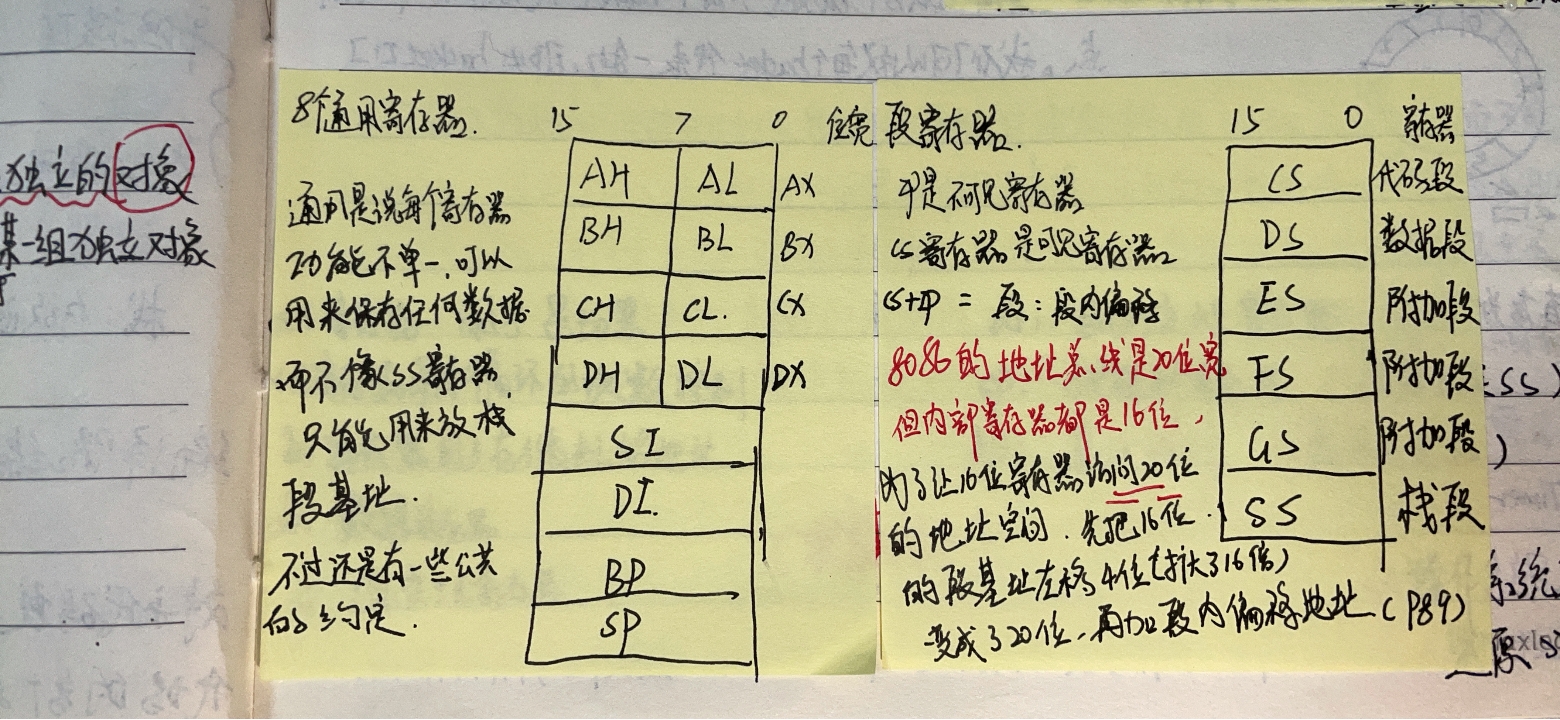 独立的对象
某一组独立对象
8个通用寄存器.
15 7 0 位宽
通用是说每个寄存器
功能不单一,可以
用来保存任何数据
而不像SS寄存器,
只能用来放栈
段基址.
不过还是有一些公共
的约定.
AH AL AX
BH BL BX
CH CL. CX
DH DL DX
SI
DI.
BP
SP
段寄存器.
15 0 寄存器
IP是不可见寄存器
CS寄存器是可见寄存器
CS+IP = 段:段内偏移
8086的地址总线是20位宽
但内部寄存器都是16位,
为了让16位寄存器访问20位
的地址空间.先把16位.
的段基址左移4位(扩大了16倍)
变成了20位,再加段内偏移地址(P89)
CS 代码段
DS 数据段
ES 附加段
FS 附加段
GS 附加段
SS 栈段
SS)
系统